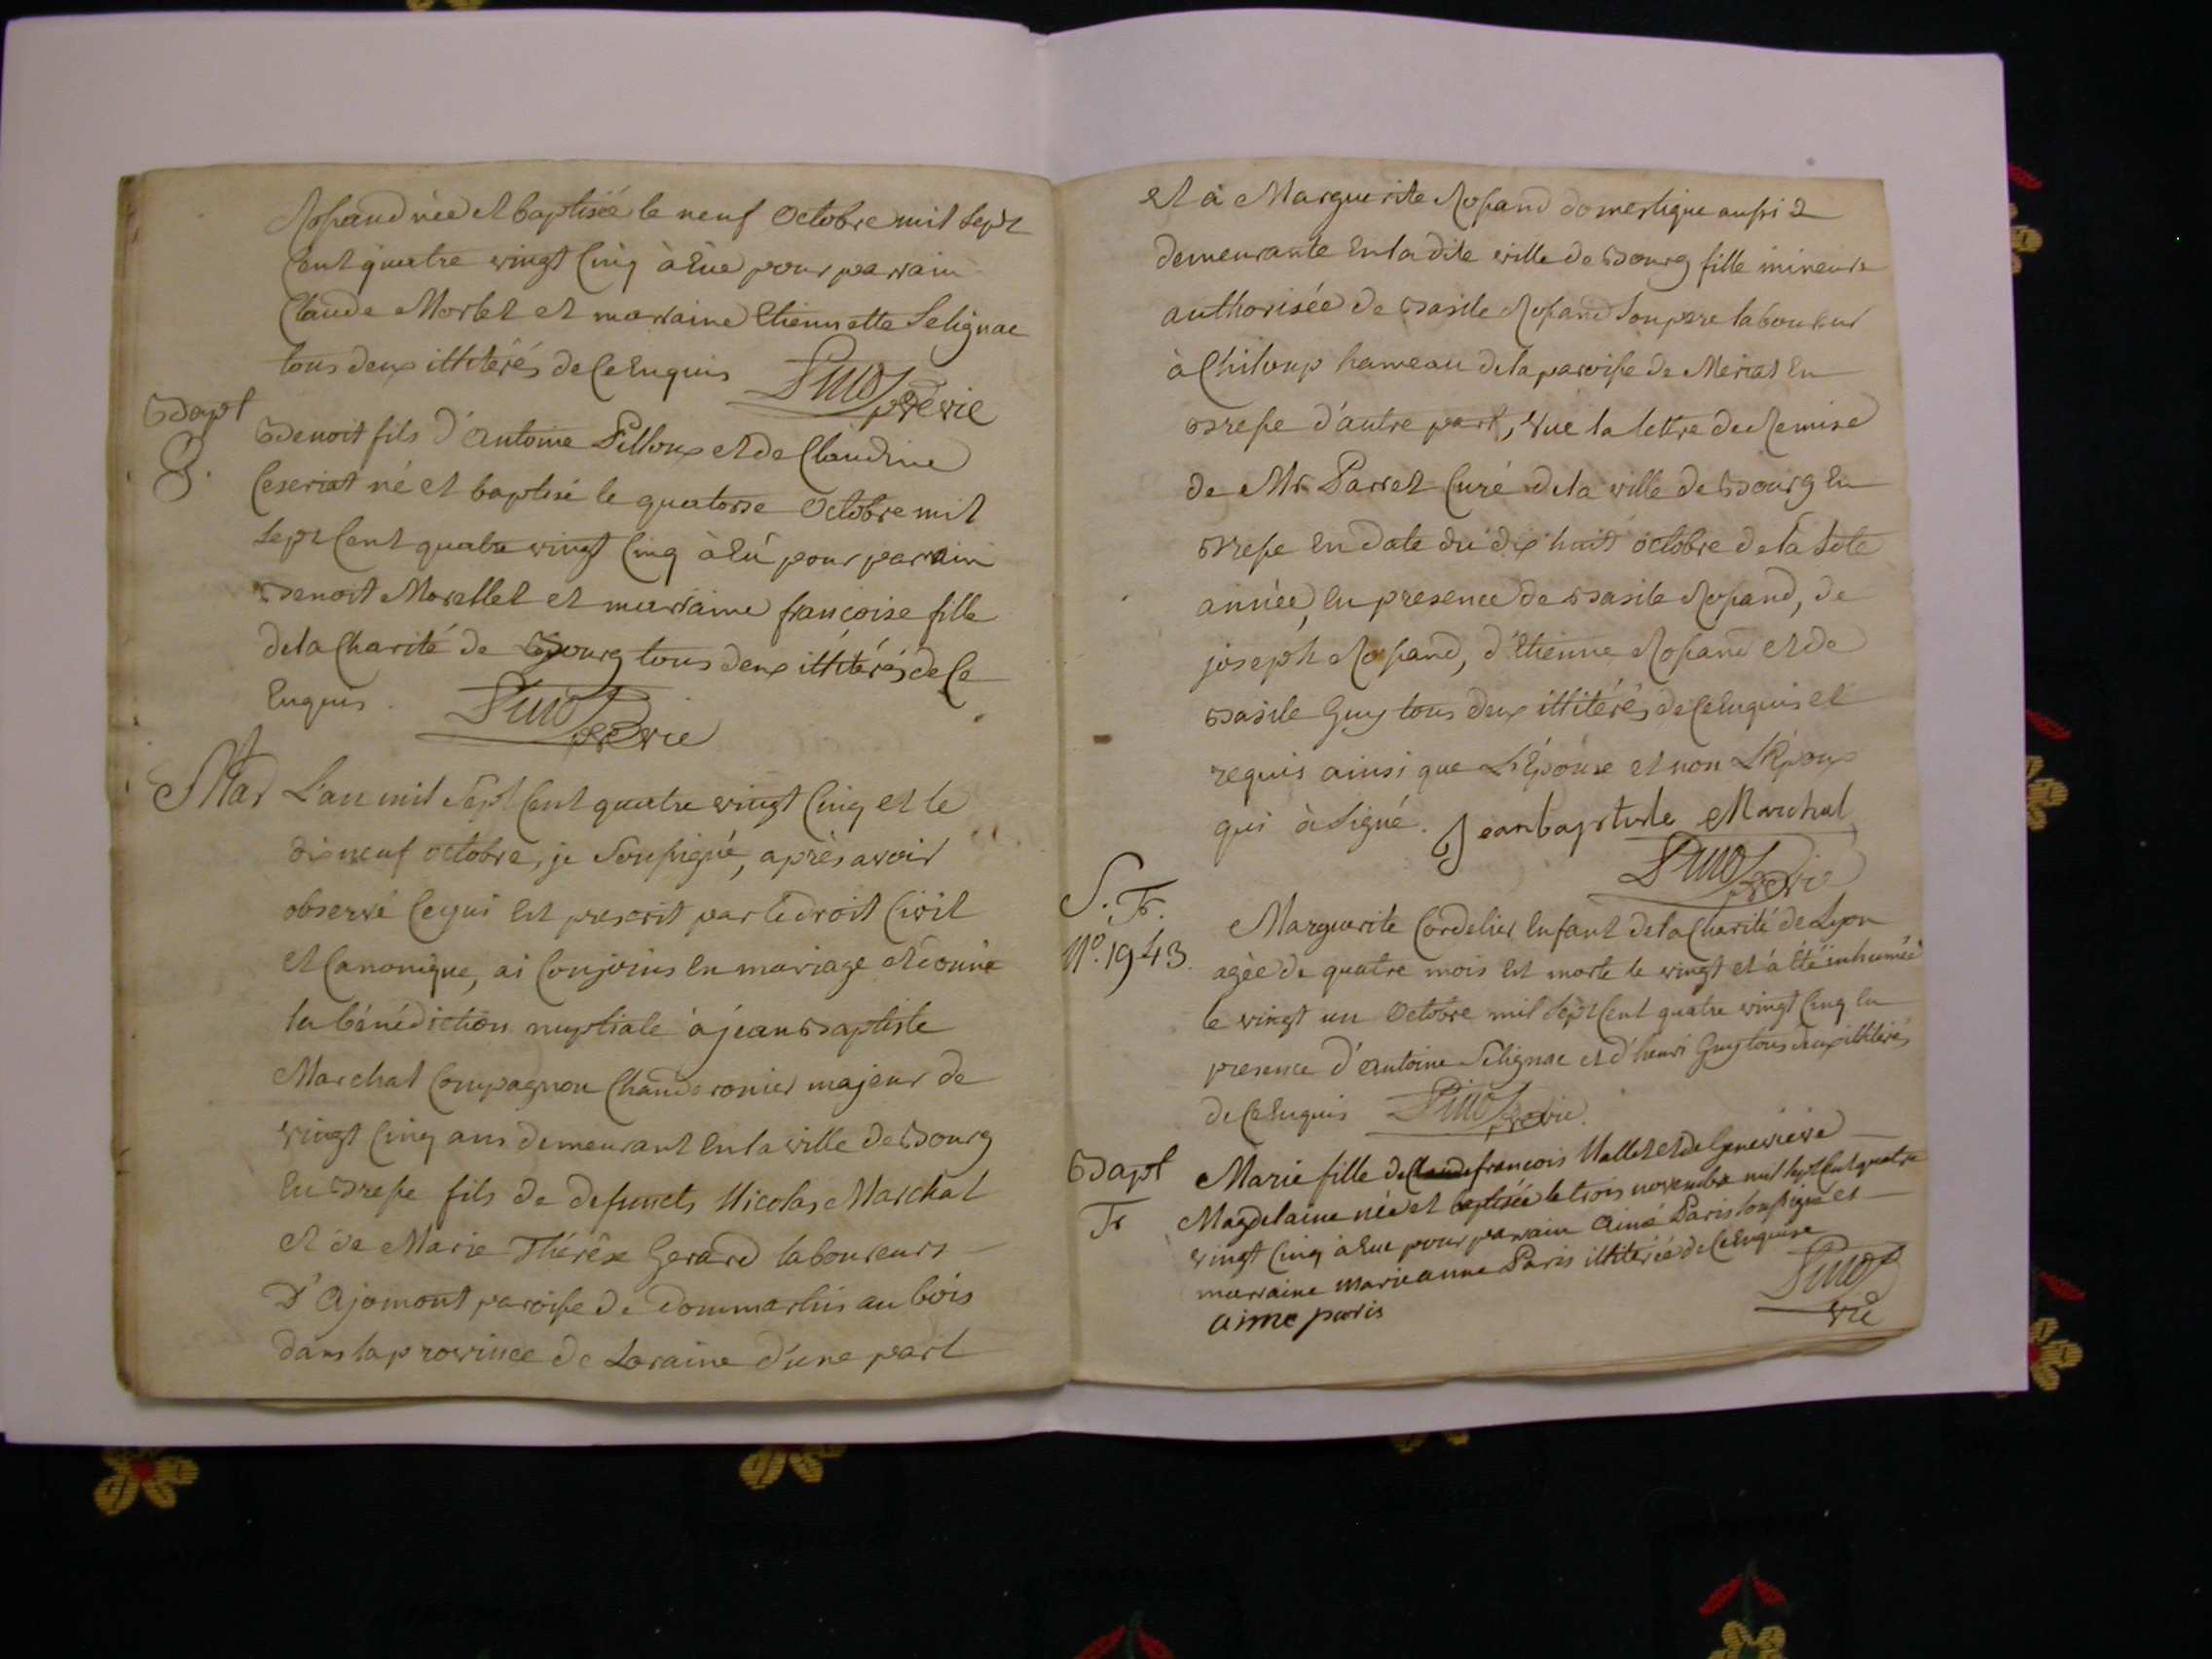 Rossand née et baptisée le neuf octobre mil sept
cent quatre vingt cinq à eue pour parrain
Claude Morlet et marraine Etiennette Selignac
tous deux illitérés de ce enquis
vic
Bapt
Benoit fils d'Antoine Pilloux et de Claudine
Ceseriat né et baptisé le quatorse octobre mil
sept cent quatre vingt cinq à eû pour parrain
Benoit Morellet et marraine françoise fille
de la Charité de Bourg tous deux illitérés de ce
enquis.
vic
Mar
L'an mil sept cent quatre vingt cinq et le
dixneuf octobre, je soussigné, après avoir
observé ce qui est prescrit par le droit Civil
et Canonique, ai conjoins en mariage et donné
la bénédiction nuptiale à jean Baptiste
Marchal Compagnon Chauderonier majeur de
vingt cinq ans demeurant en la ville de Bourg
en Bresse fils de defuncts Nicolas Marchal
et de Marie Thérèse Gerard laboureurs
D'Ajomont paroisse de Dommartin au bois
dans la province de Loraine d'une part
et à Marguerite Rossand domestique aussi
demeurante en la dite ville de Bourg fille mineure
authorisée de Basile Rossand son pere laboureur
à Chiloup hameau de la paroisse de Meriat en
Bresse d'autre part, vue la lettre de Remise
de Mr. Parret Curé de la ville de Bourg en
Bresse en date du dix huit octobre de la dite
année, en presence de Basile Rossand, de
joseph Rossand, d'Etienne Rossand et de
Basile Guy tous deux illitérés de ce enquis et
requis ainsi que L'Epouse et non L'Epoux
qui à signé. Jean baptiste Marchal
vic
S. Fr.
N°. 1943.
Marguerite Cordelier enfant de la Charité de Lyon
agée de quatre mois est morte le vingt et à été inhumée
le vingt un octobre mil sept cent quatre vingt cinq en
presence d'Antoine Selignac et d'henri Guy tous deux illitérés
de ce enquis
vic.
Bapt
Fr
Marie fille de Claude françois Mallet et de Genevieve
Magdelaine née et baptisée le trois novembre mil sept cent quatre
vingt cinq à eue pour parrain Aimé Paris soussigné et
marraine Marieanne Paris illitérée de ce enquise
aime paris
vic